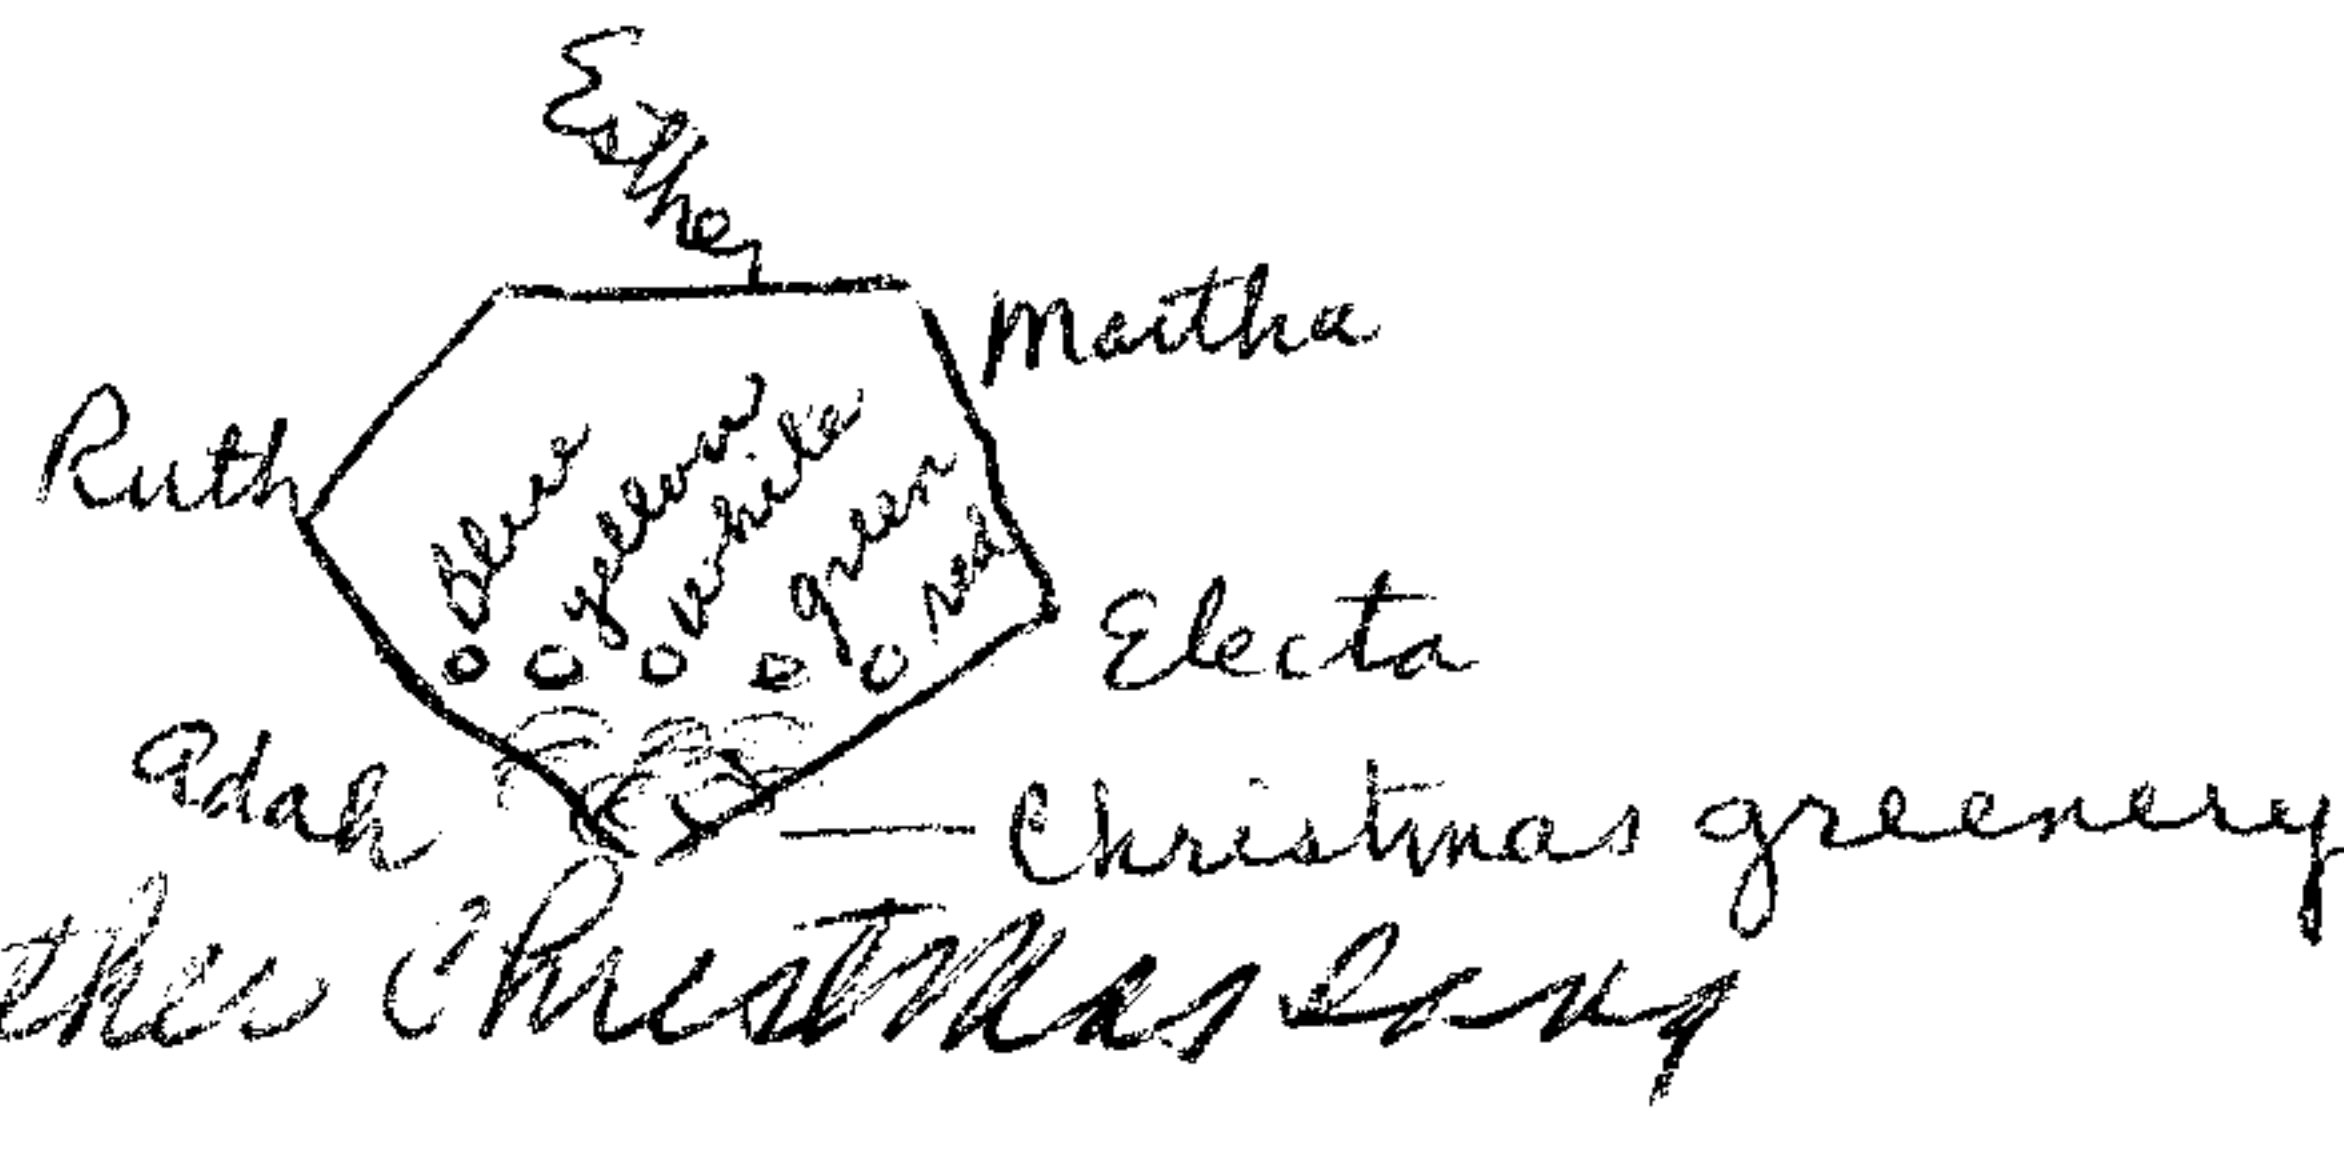 Esther
Martha
Ruth
Blue
yellow
white
green
red
Electa
Adah
Christmas greenery
Christmas Song